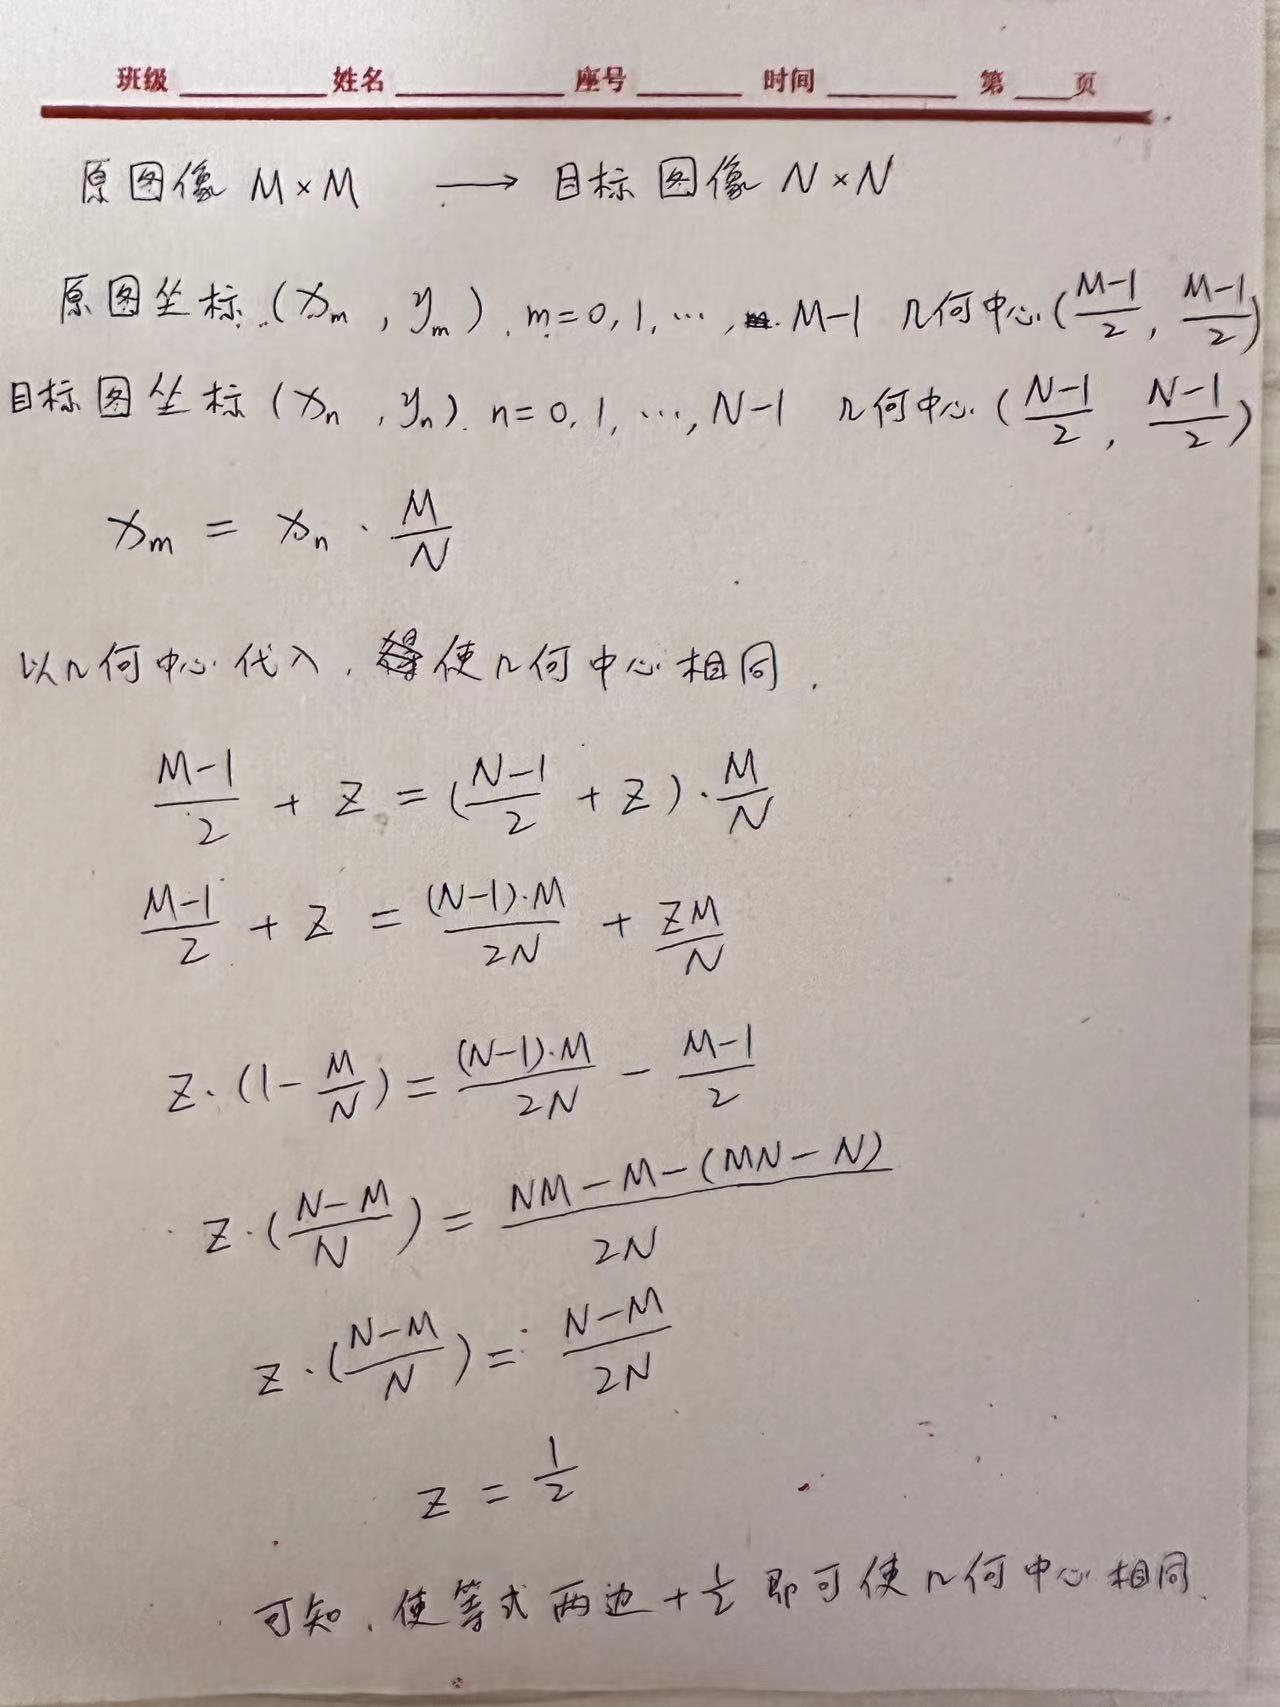 班级 姓名 座号 时间 第 页
原图像 M×M → 目标图像 N×N
原图坐标 (x_m , y_m) . m=0, 1, …, M-1 几何中心 ((M-1)/2 , (M-1)/2)
目标图坐标 (x_n , y_n) . n=0, 1, …, N-1 几何中心 ((N-1)/2 , (N-1)/2)
x_m = x_n · M/N
以几何中心代入, 使几何中心相同.
(M-1)/2 + z = ((N-1)/2 + z) · M/N
(M-1)/2 + z = (N-1)·M/2N + zM/N
z·(1 - M/N) = (N-1)·M/2N - (M-1)/2
z·((N-M)/N) = (NM-M-(MN-N))/2N
z·((N-M)/N) = (N-M)/2N
z = 1/2
可知, 使等式两边+1/2 即可使几何中心相同.